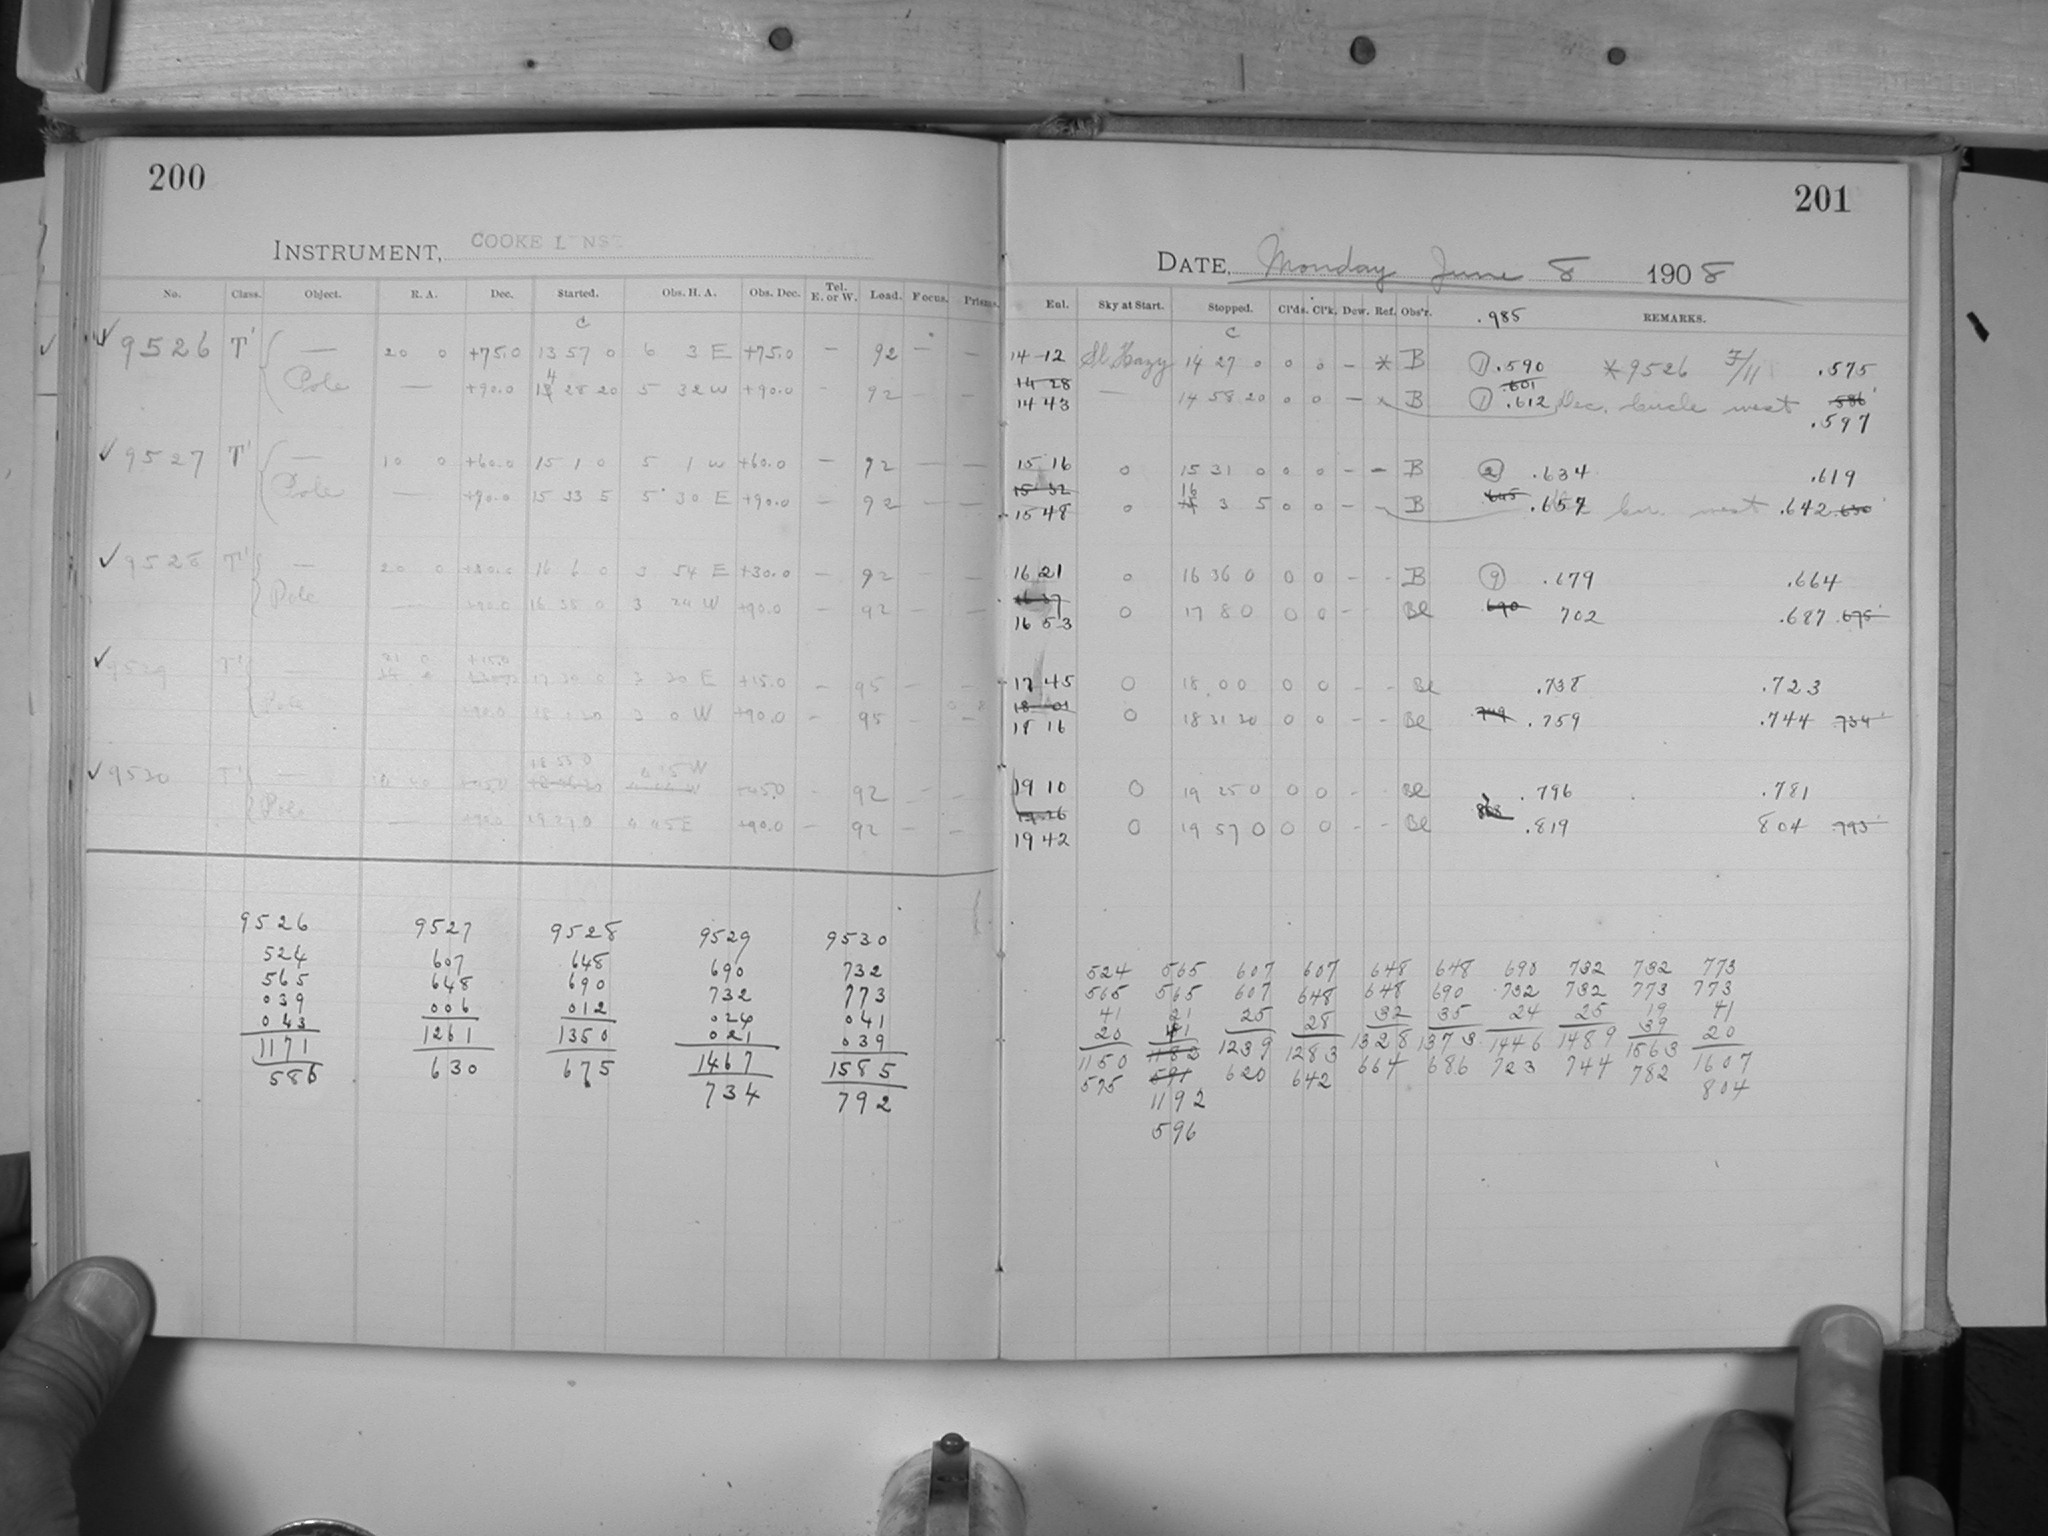 200
INSTRUMENT, COOKE LENSE
No. Class. Object. R. A. Dec. Started. Obs. H. A. Obs. Dec. Tel. E. or W. Load. Focus. Prisms.
C
9526 T' — 20 0 +75.0 13 57 0 6 3 E +75.0 — 92 — —
Pole — +90.0 14 28 20 5 32 W +90.0 - 92 — —
9527 T' — 10 0 +60.0 15 1 0 5 1 W +60.0 — 92 — —
Pole — +90.0 15 33 5 5 30 E +90.0 - 92 — —
9528 T' — 20 0 +30.0 16 6 0 3 54 E +30.0 — 92 — —
Pole — +90.0 16 38 0 3 24 W +90.0 - 92 — —
9529 T' — 21 0 +15.0 17 30 0 3 20 E +15.0 - 95 — —
Pole — +90.0 18 1 20 3 0 W +90.0 - 95 — —
9530 T' — +45.0 18 55 0 +45.0 - 92 — —
Pole — +90.0 19 27 0 4 45 E +90.0 — 92 — —
9526 9527 9528 9529 9530
524 607 648 690 732
565 648 690 732 773
039 006 012 024 041
043 1261 1350 021 039
1171 630 675 1467 1585
586 734 792
201
DATE, Monday June 8 1908
Enl. Sky at Start. Stopped. Cl'ds. Cl'k. Dew. Ref. Obs'r. .985 REMARKS.
C
14 12 Sl Hazy 14 27 0 0 0 — * B 1 .590 *9526 F/11 .575
14 28 .601
14 43 — 14 58 20 0 0 — x B 1 .612 Dec. circle west 586
.597
15 16 0 15 31 0 0 0 - - B 2 .634 .619
15 32 16 645
15 48 0 3 5 0 0 - - B .657 cir. west .642 .630
16 21 0 16 36 0 0 0 - - B 9 .679 .664
16 37 690
16 53 0 17 8 0 0 0 - - Bl 702 .687 .675
17 45 0 18 00 0 0 - - Bl .738 .723
18 01 749
18 16 0 18 31 20 0 0 - - Bl .759 .744 734
19 10 0 19 25 0 0 0 - - Bl .796 .781
19 26 808
19 42 0 19 57 0 0 0 - - Bl .819 804 793
524 565 607 607 648 648 690 732 732 773
565 565 607 648 648 690 732 732 773 773
41 21 25 28 32 35 24 25 19 41
20 41 1239 1283 1328 1373 1446 1489 39 20
1150 1183 620 642 664 686 723 744 1563 1607
575 591 782 804
1192
596